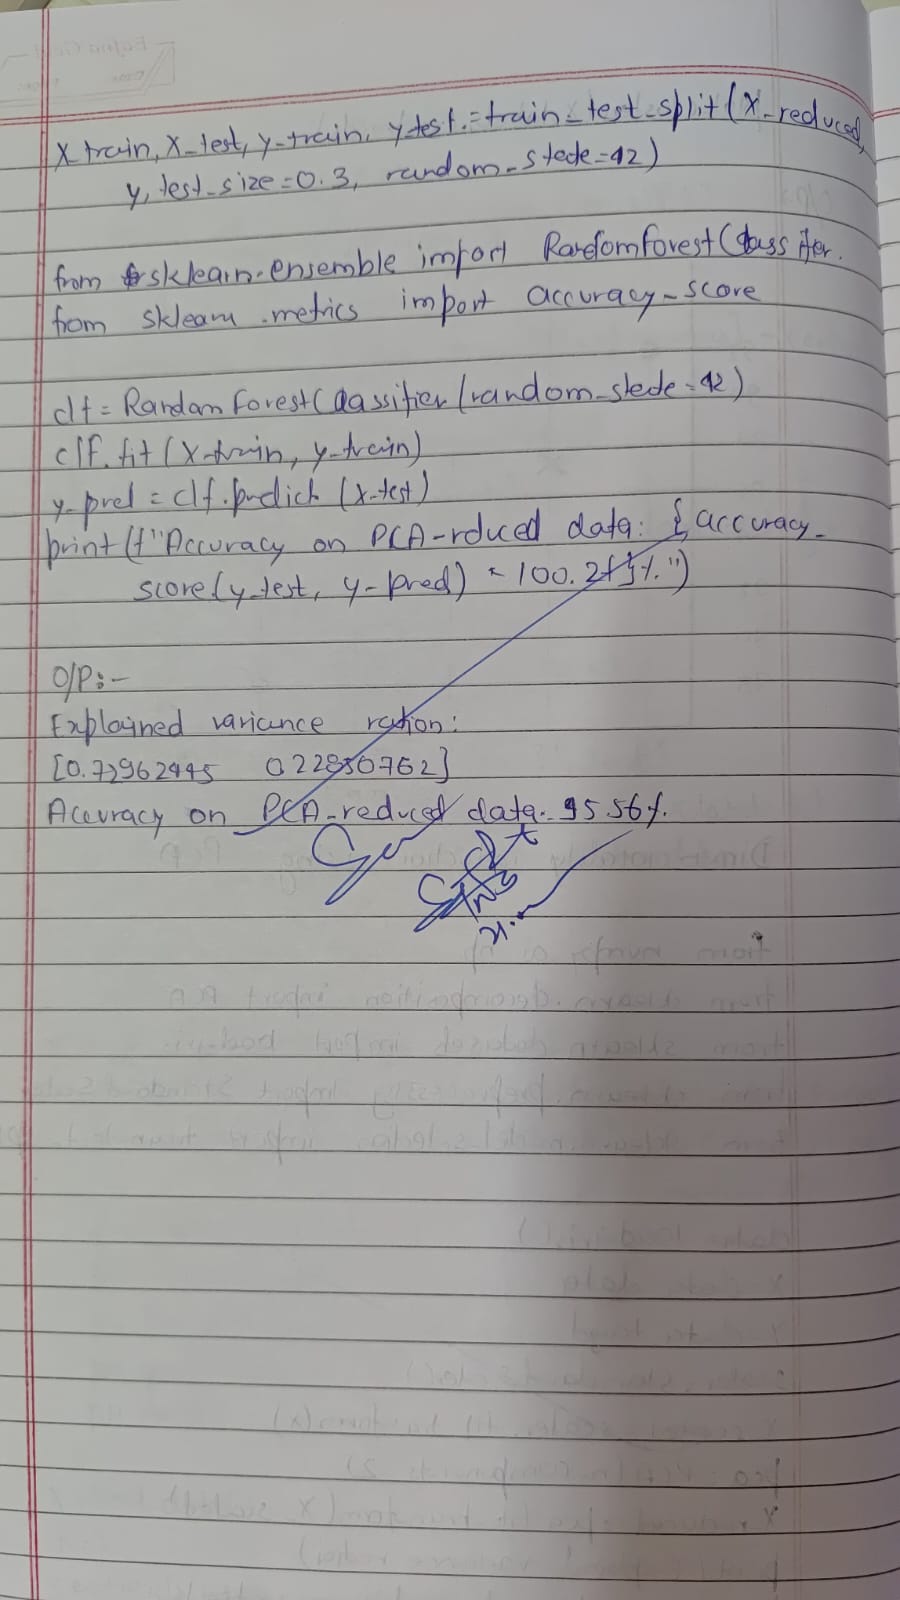 X train, X_test, y-train, y-test.=train_test_split(X_reduced,
y, test_size=0.3, random_stede=42)
from sklearn.ensemble import RandomForest Classifier.
from sklearn.metrics import accuracy_score
clf = Random Forest Classifier (random_stede=42)
clf.fit (X-train, y-train)
y-pred = clf.predich (x-test)
print (f"Accuracy on PCA-rduced data: { accuracy_
score (y_test, y-pred) * 100.2f}%.")
O/P:-
Explained variance ration:
[0.72962445 022850762]
Accuracy on PCA-reduced data.. 95 56%.